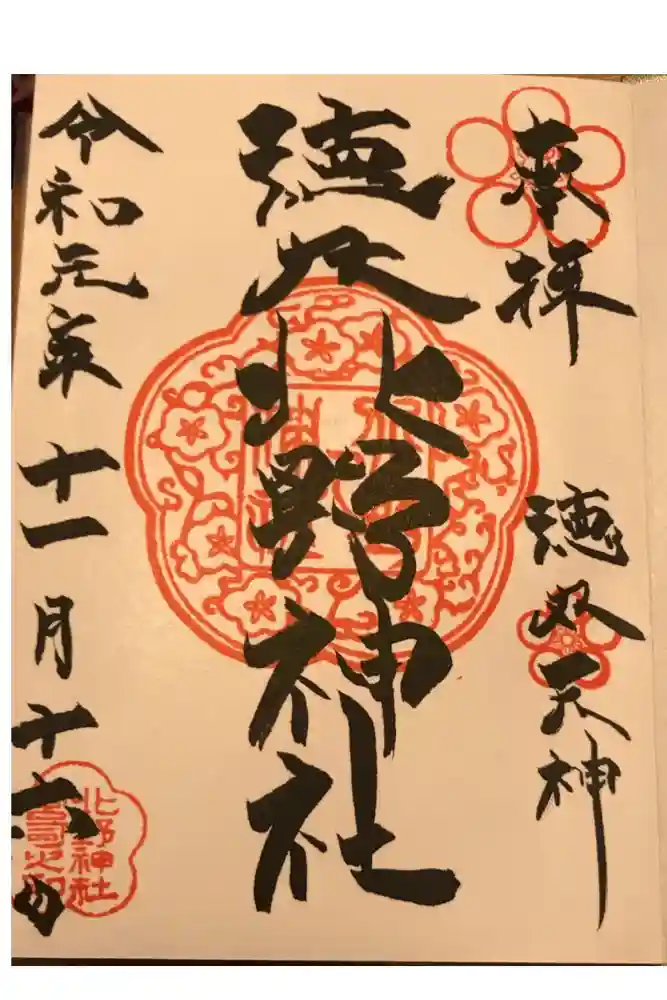 奉拝
徳丸天神
徳丸北野神社
令和元年十一月十六日
北野神社
宮司之印